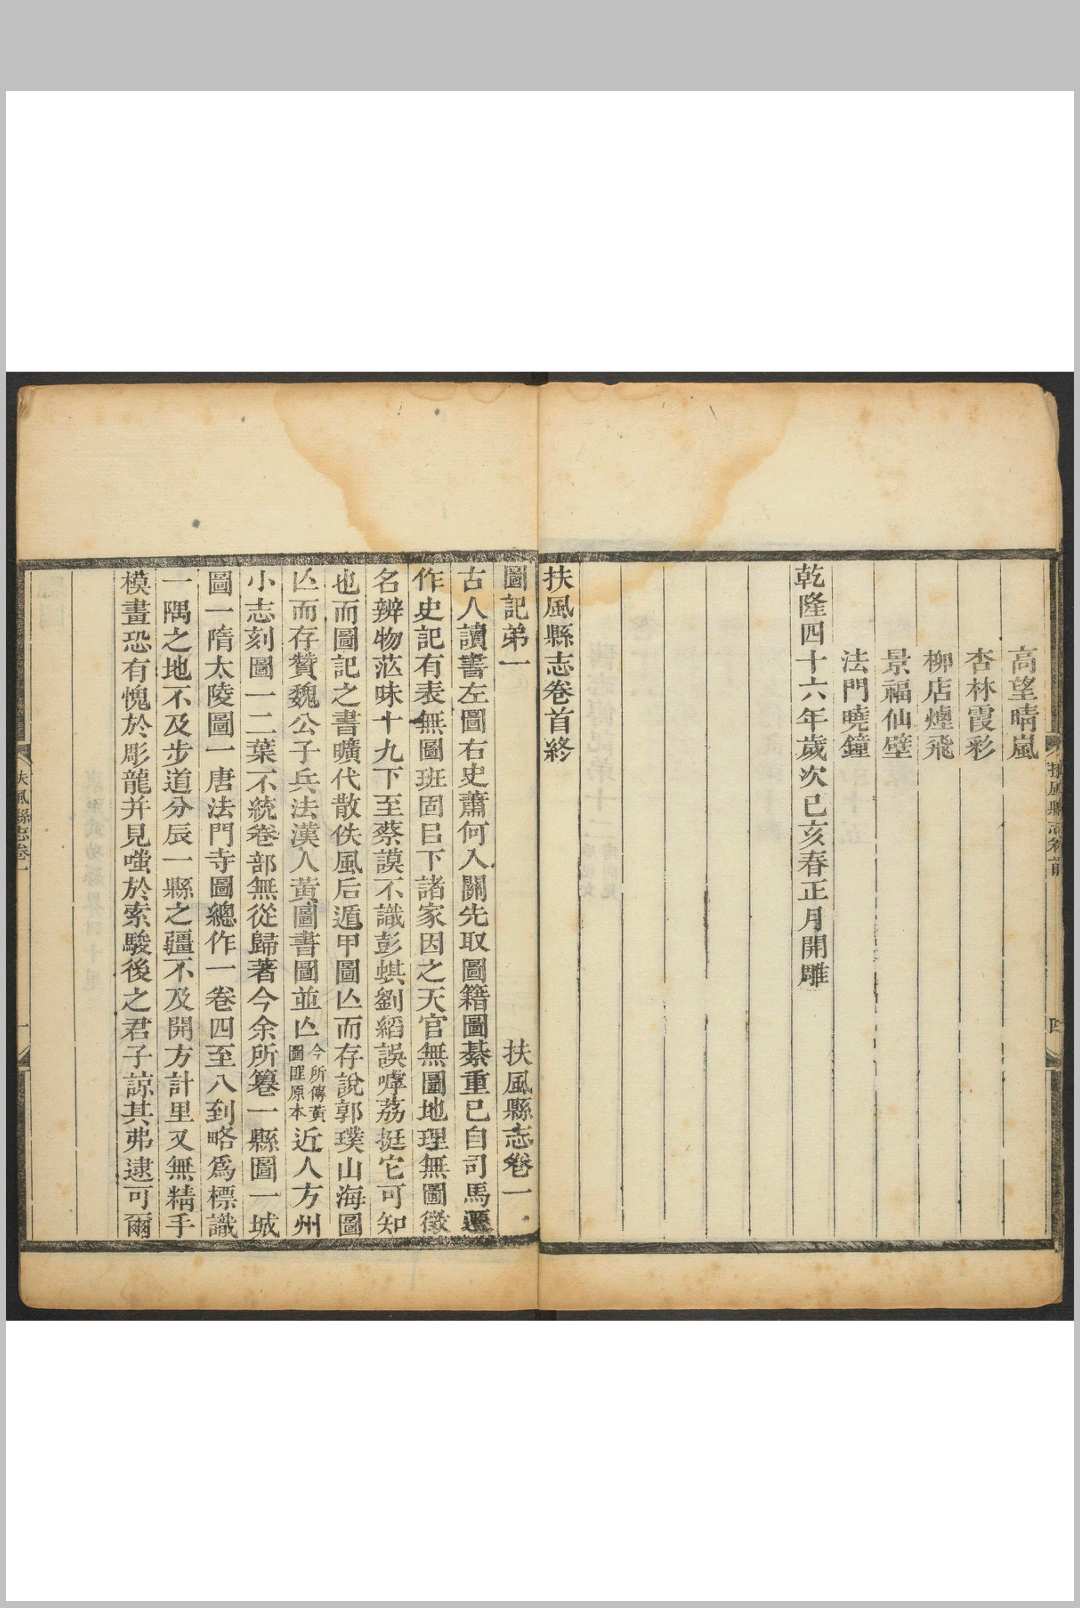 高望晴嵐
杏林霞彩
柳店煙飛
景福仙壁
法門曉鐘
乾隆四十六年歲次己亥春正月開雕
扶風縣志卷首終
圖記弟一
扶風縣志卷一
古人讀書左圖右史蕭何入關先取圖籍圖綦重已自司馬遷
作史記有表無圖班固㠯下諸家因之天官無圖地理無圖徵
名辨物茫昧十九下至蔡謨不識彭蜞劉縚誤嘑荔挺它可知
也而圖記之書曠代散佚風后遁甲圖亾而存說郭璞山海圖
亾而存贊魏公子兵法漢人黃圖書圖並亾今所傳黃圖匪原本近人方州
小志刻圖一二葉不統卷部無從歸著今余所籑一縣圖一城
圖一隋太陵圖一唐法門寺圖總作一卷四至八到略爲標識
一隅之地不及步道分辰一縣之疆不及開方計里又無精手
模畫恐有愧於彫龍并見嗤於索駿後之君子諒其弗逮可爾
扶風縣志卷一
一